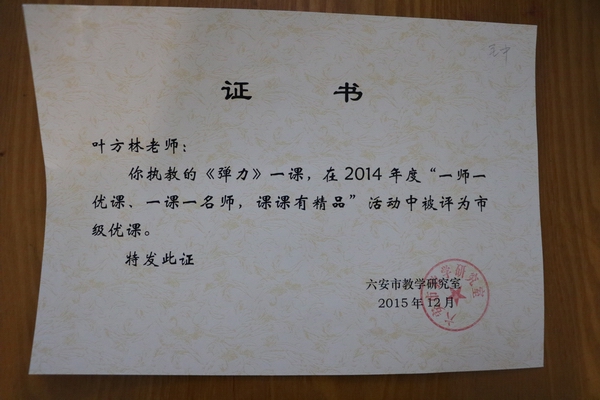 证 书
叶方林老师：
你执教的《弹力》一课，在 2014 年度“一师一
优课、一课一名师，课课有精品”活动中被评为市
级优课。
特发此证
六安市教学研究室
2015 年 12 月
六安市教学研究室